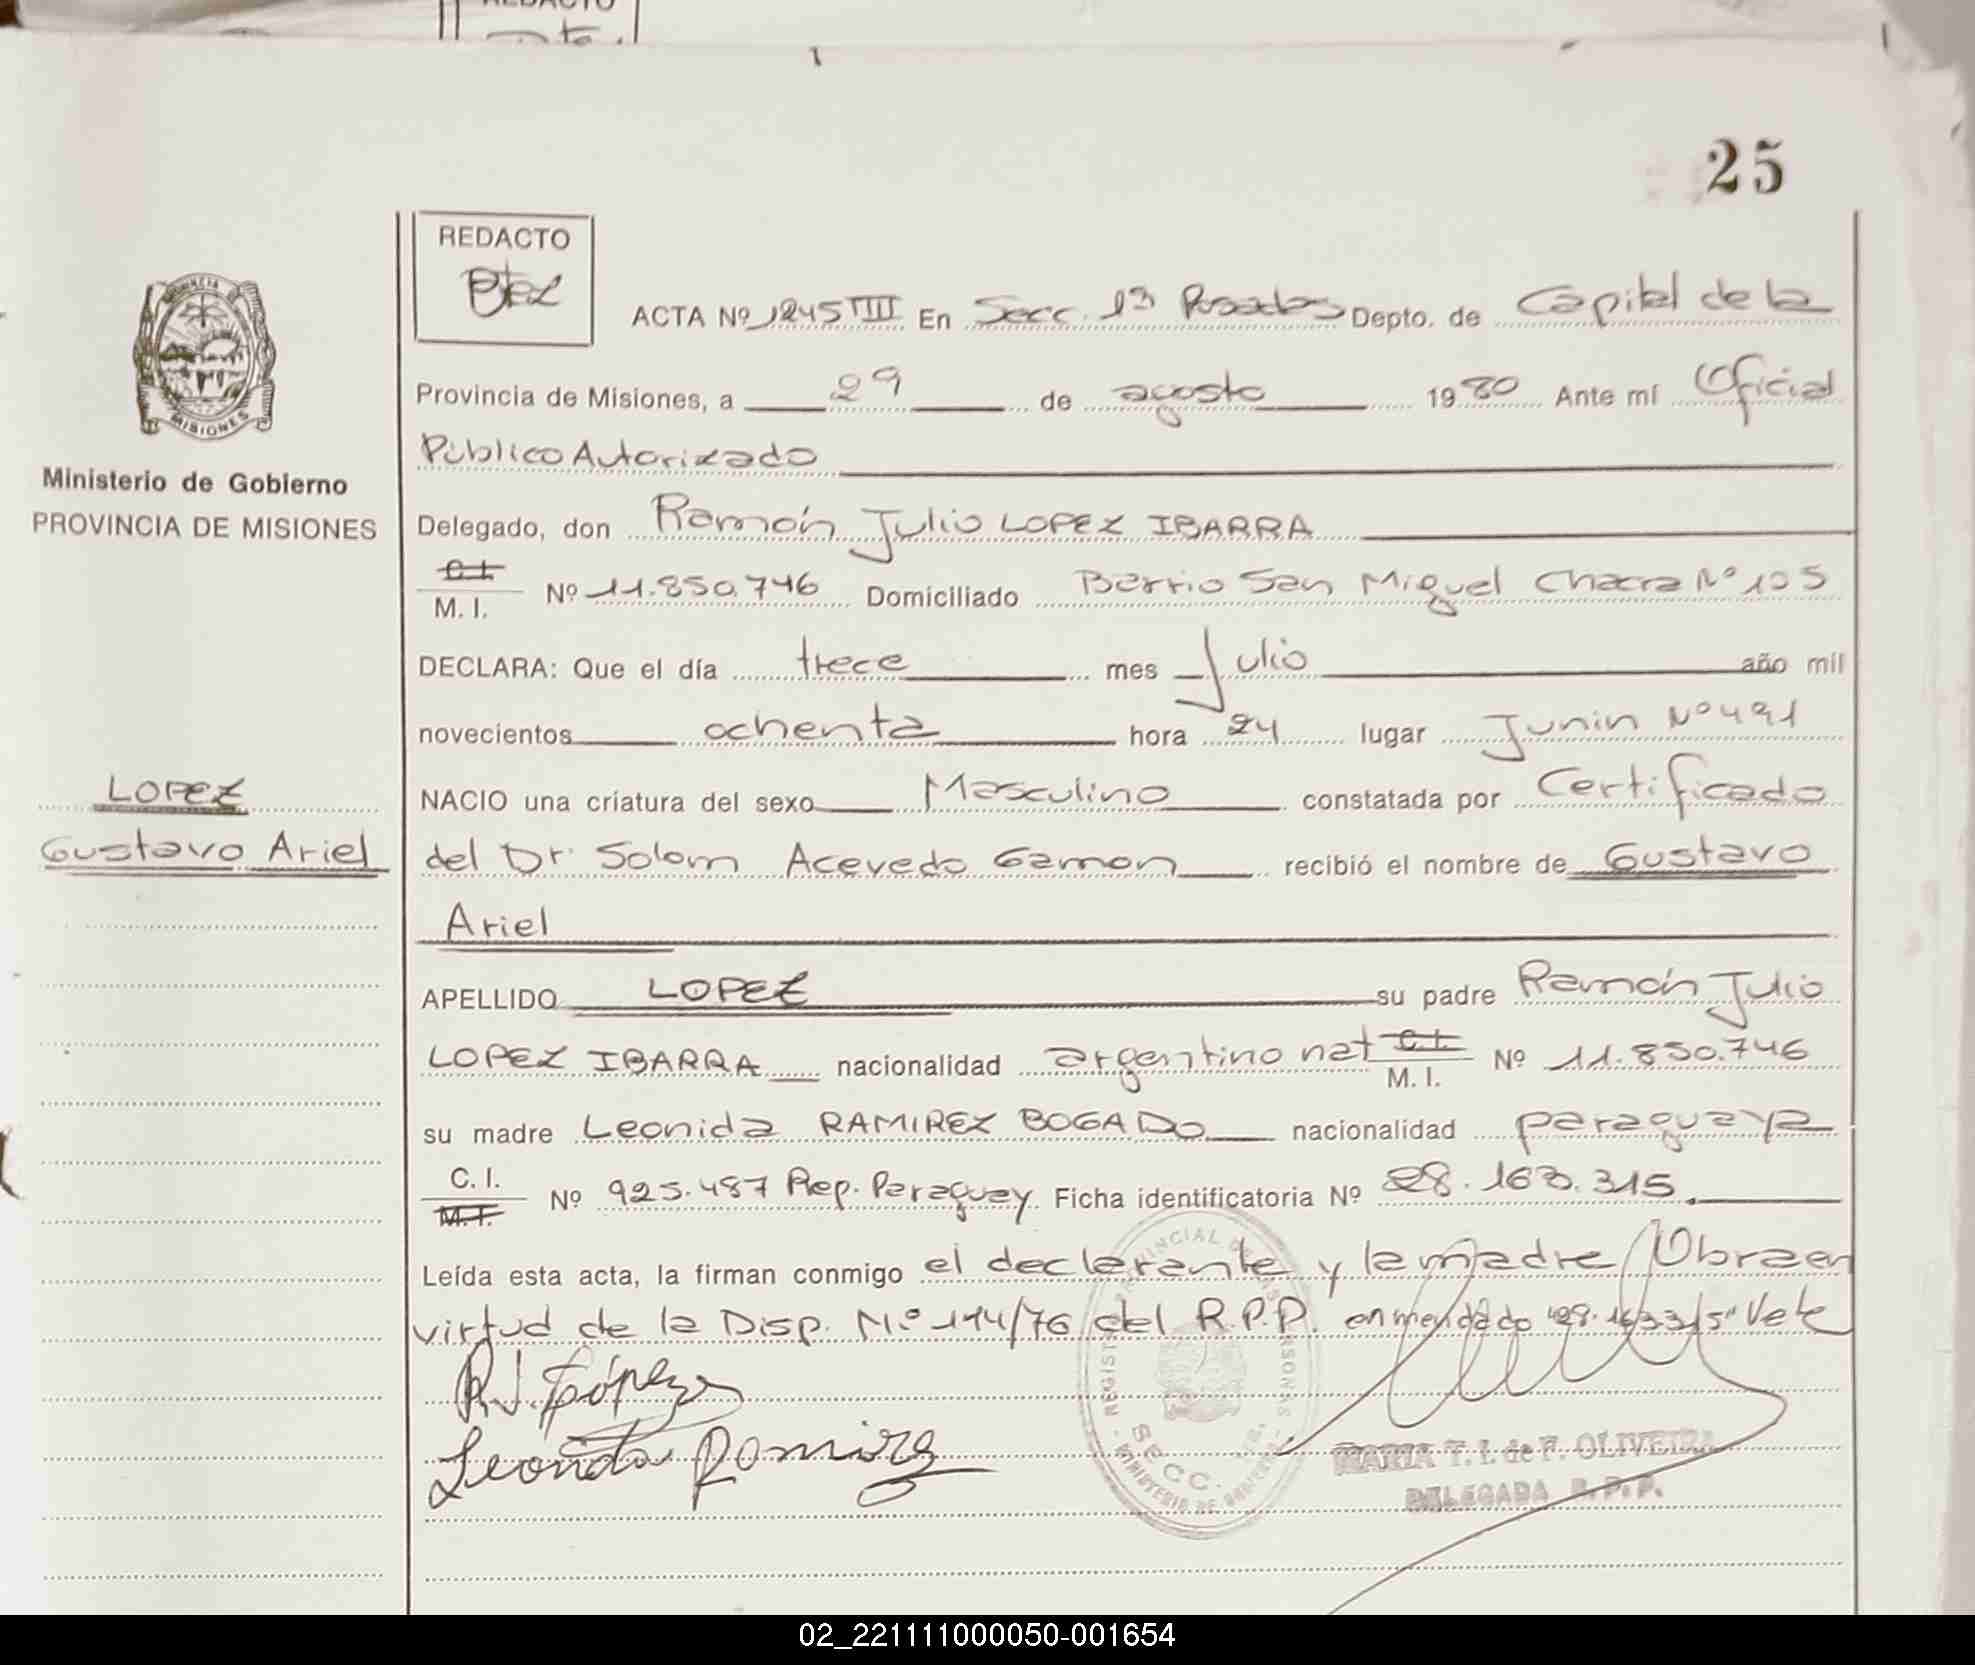 REDACTO
25
REDACTO
ACTA Nº 1245 TIII En Secc. 1ª Posadas Depto. de Capital de la
Provincia de Misiones, a 29 de agosto 1980 Ante mí Oficial
Público Autorizado
Ministerio de Gobierno
PROVINCIA DE MISIONES
Delegado, don Ramón Julio LOPEZ IBARRA
C.I.
M. I. Nº 11.850.746 Domiciliado Barrio San Miguel Chacra Nº 105
DECLARA: Que el día trece mes Julio año mil
novecientos ochenta hora 24 lugar Junin Nº 491
LOPEZ
Gustavo Ariel
NACIO una criatura del sexo Masculino constatada por Certificado
del Dr. Solom Acevedo Gamon recibió el nombre de Gustavo
Ariel
APELLIDO LOPEZ su padre Ramón Julio
LOPEZ IBARRA nacionalidad argentino nat C.I. M. I. Nº 11.850.746
su madre Leonida RAMIREZ BOGADO nacionalidad paraguaya
C. I.
M.I. Nº 925.487 Rep. Paraguay. Ficha identificatoria Nº 28.163.315.
Leída esta acta, la firman conmigo el declarante y la madre Obra en
virtud de la Disp. Nº 144/76 del R.P.P. enmendado Vale
R.J. López
Leonida Ramirez
REGISTRO PROVINCIAL DE LAS PERSONAS
SECC.
MINISTERIO DE GOBIERNO
MARIA T. I. de F. OLIVEIRA
DELEGADA R.P.P.
02_221111000050-001654